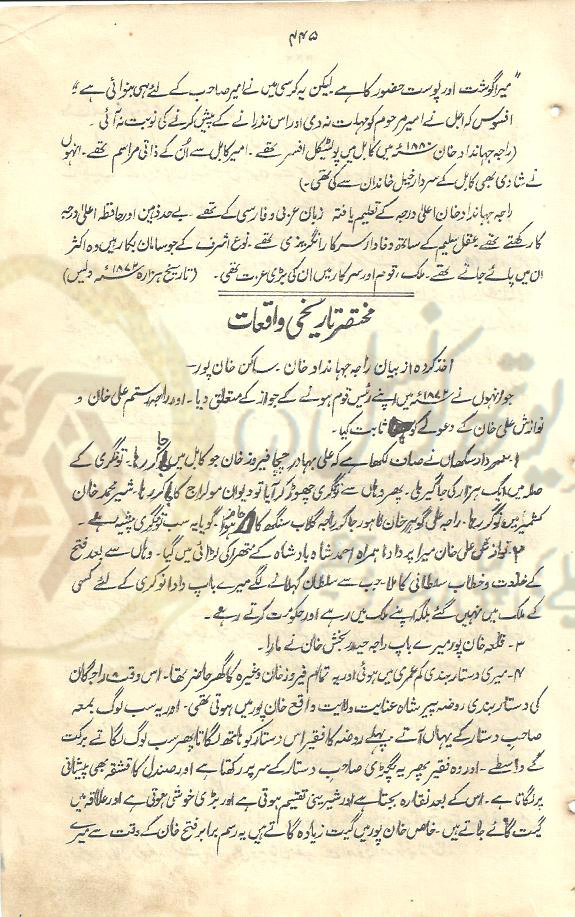 ۴۴۵
"میرا گوشت اور پوست حضور کا ہے لیکن یہ کرسی میں نے امیر صاحب کے لئے ہی بنوائی ہے"
افسوس کہ اجل نے امیر مرحوم کو مہلت نہ دی اور اس نذرانے کے پیش کرنے کی نوبت نہ آئی۔
(راجہ جہانداد خان ۱۸۸۰ء میں کابل میں پولٹیکل افسر تھے۔ امیر کابل سے اُن کے ذاتی مراسم تھے۔ انہوں
نے شادی بھی کابل کے سردار خیل خاندان سے کی تھی۔)
راجہ جہانداد خان اعلیٰ درجہ کے تعلیم یافتہ زبان عربی و فارسی کے تھے۔ بے حد ذہین اور حافظہ اعلیٰ درجہ
کا رکھتے تھے عقل سلیم کے ساتھ وفادار سرکار انگریزی تھے۔ نوع اشرف کے جو سامان بکار ہیں وہ اکثر
ان میں پائے جاتے تھے۔ ملک، قوم اور سرکار میں ان کی بڑی عزت تھی۔ (تاریخ ہزارہ ۱۸۷۴ء ویس)
مختصر تاریخی واقعات
اخذ کردہ از بیان راجہ جہانداد خان ۔ ساکن خان پور۔
جو انہوں نے ۱۸۷۲ء میں اپنے رئیس قوم ہونے کے جواز کے متعلق دیا۔ اور راجہ رستم علی خان و
نوازش علی خان کے دعوے کو ثابت کیا۔
۱۔ سردار سنگھاں نے صاف لکھا ہے کہ علی بہادر چچا فیروز خان جو کابل میں جاگیر رہا۔ نوکری کے
صلہ میں ایک ہزار کی جاگیر ملی۔ پھر وہاں سے نوکری چھوڑ کر آیا تو دیوان مولراج کا نوکر رہا۔ شیر محمد خان
کشمیر میں نوکر رہا۔ راجہ علی گوہر خان لاہور جا کر راجہ گلاب سنگھ کا ملازم ہوا۔ گویا یہ سب نوکری پیشہ ہے۔
۲۔ نواز علی خان میرا پردادا ہمراہ احمد شاہ بادشاہ کے متھرا کی لڑائی میں گیا۔ وہاں سے بعد فتح
کے خلعت و خطاب سلطانی کا ملا۔ جب سے سلطان کہلانے لگے میرے باپ دادا نوکری کے لئے کسی
کے ملک میں نہیں گئے بلکہ اپنے ملک میں رہے اور حکومت کرتے رہے۔
۳۔ قلعہ خان پور میرے باپ راجہ حیدر بخش خان نے مارا۔
۴۔ میری دستار بندی کم عمری میں ہوئی اور یہ تمام فیروز خان وغیرہ کا گھر حاضر تھا۔ اس وقت راجگان
کی دستار بندی روضہ پیر شاہ عنایت ولایت واقع خان پور میں ہوتی تھی۔ اور یہ سب لوگ بمعہ
صاحب دستار کے یہاں آتے۔ پہلے روضہ کا فقیر اس دستار کو ہاتھ لگاتا پھر سب لوگ لگاتے برکت
کے واسطے۔ اور وہ فقیر پھر یہ پگڑی صاحب دستار کے سر پر رکھتا ہے اور صندل کا قشقہ بھی پیشانی
پر لگاتا ہے۔ اس کے بعد نقارہ بجتا ہے اور شیرینی تقسیم ہوتی ہے اور بڑی خوشی ہوتی ہے اور علاقہ میں
گیت گائے جاتے ہیں۔ خاص خان پور میں گیت زیادہ گاتے ہیں یہ رسم برابر فتح خان کے وقت سے میرے